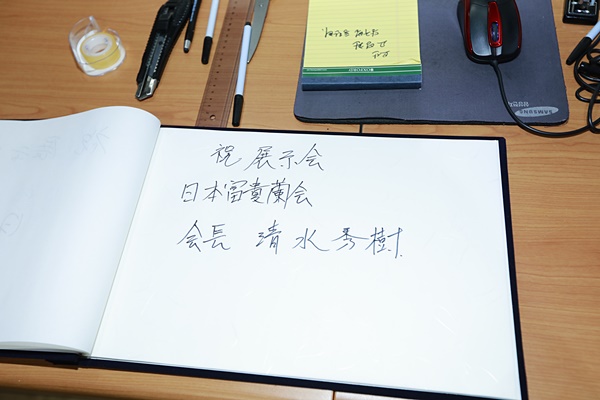 祝 展示会
日本富貴蘭会
会長 清水秀樹
SAMSUNG